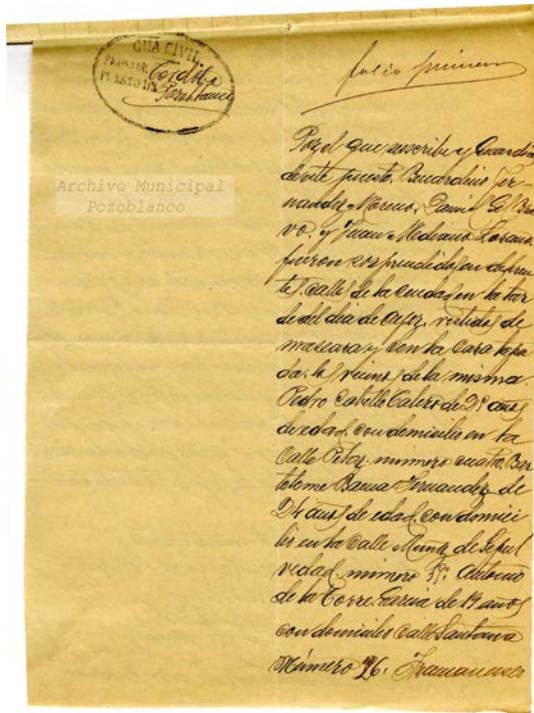 GUA CIVIL
Córdoba
PUESTO DE
Pozoblanco
folio primero
Archivo Municipal
Pozoblanco
Por el que suscribe y Guardias
de este puesto. Bernardino Fer-
nandez Moreno, Daniel Gil Bra
vo. y Juan Medrano Lozano.
fueron sorprendidos en diferen
tes calles de la ciudad en la tar
de del dia de ayer, vestidos de
mascara y con la cara tapa
da. los vecinos de la misma.
Pedro Cabello Calero de años
de edad. con domicilio en la
Calle numero cuatro. Bar
tolome Fernandez de
24 años de edad. con domici
lio en la Calle Muñoz de Sepul
veda. numero Antonio
de la Torre Garcia de 19 años
con domicilio calle Santana
Número 26.